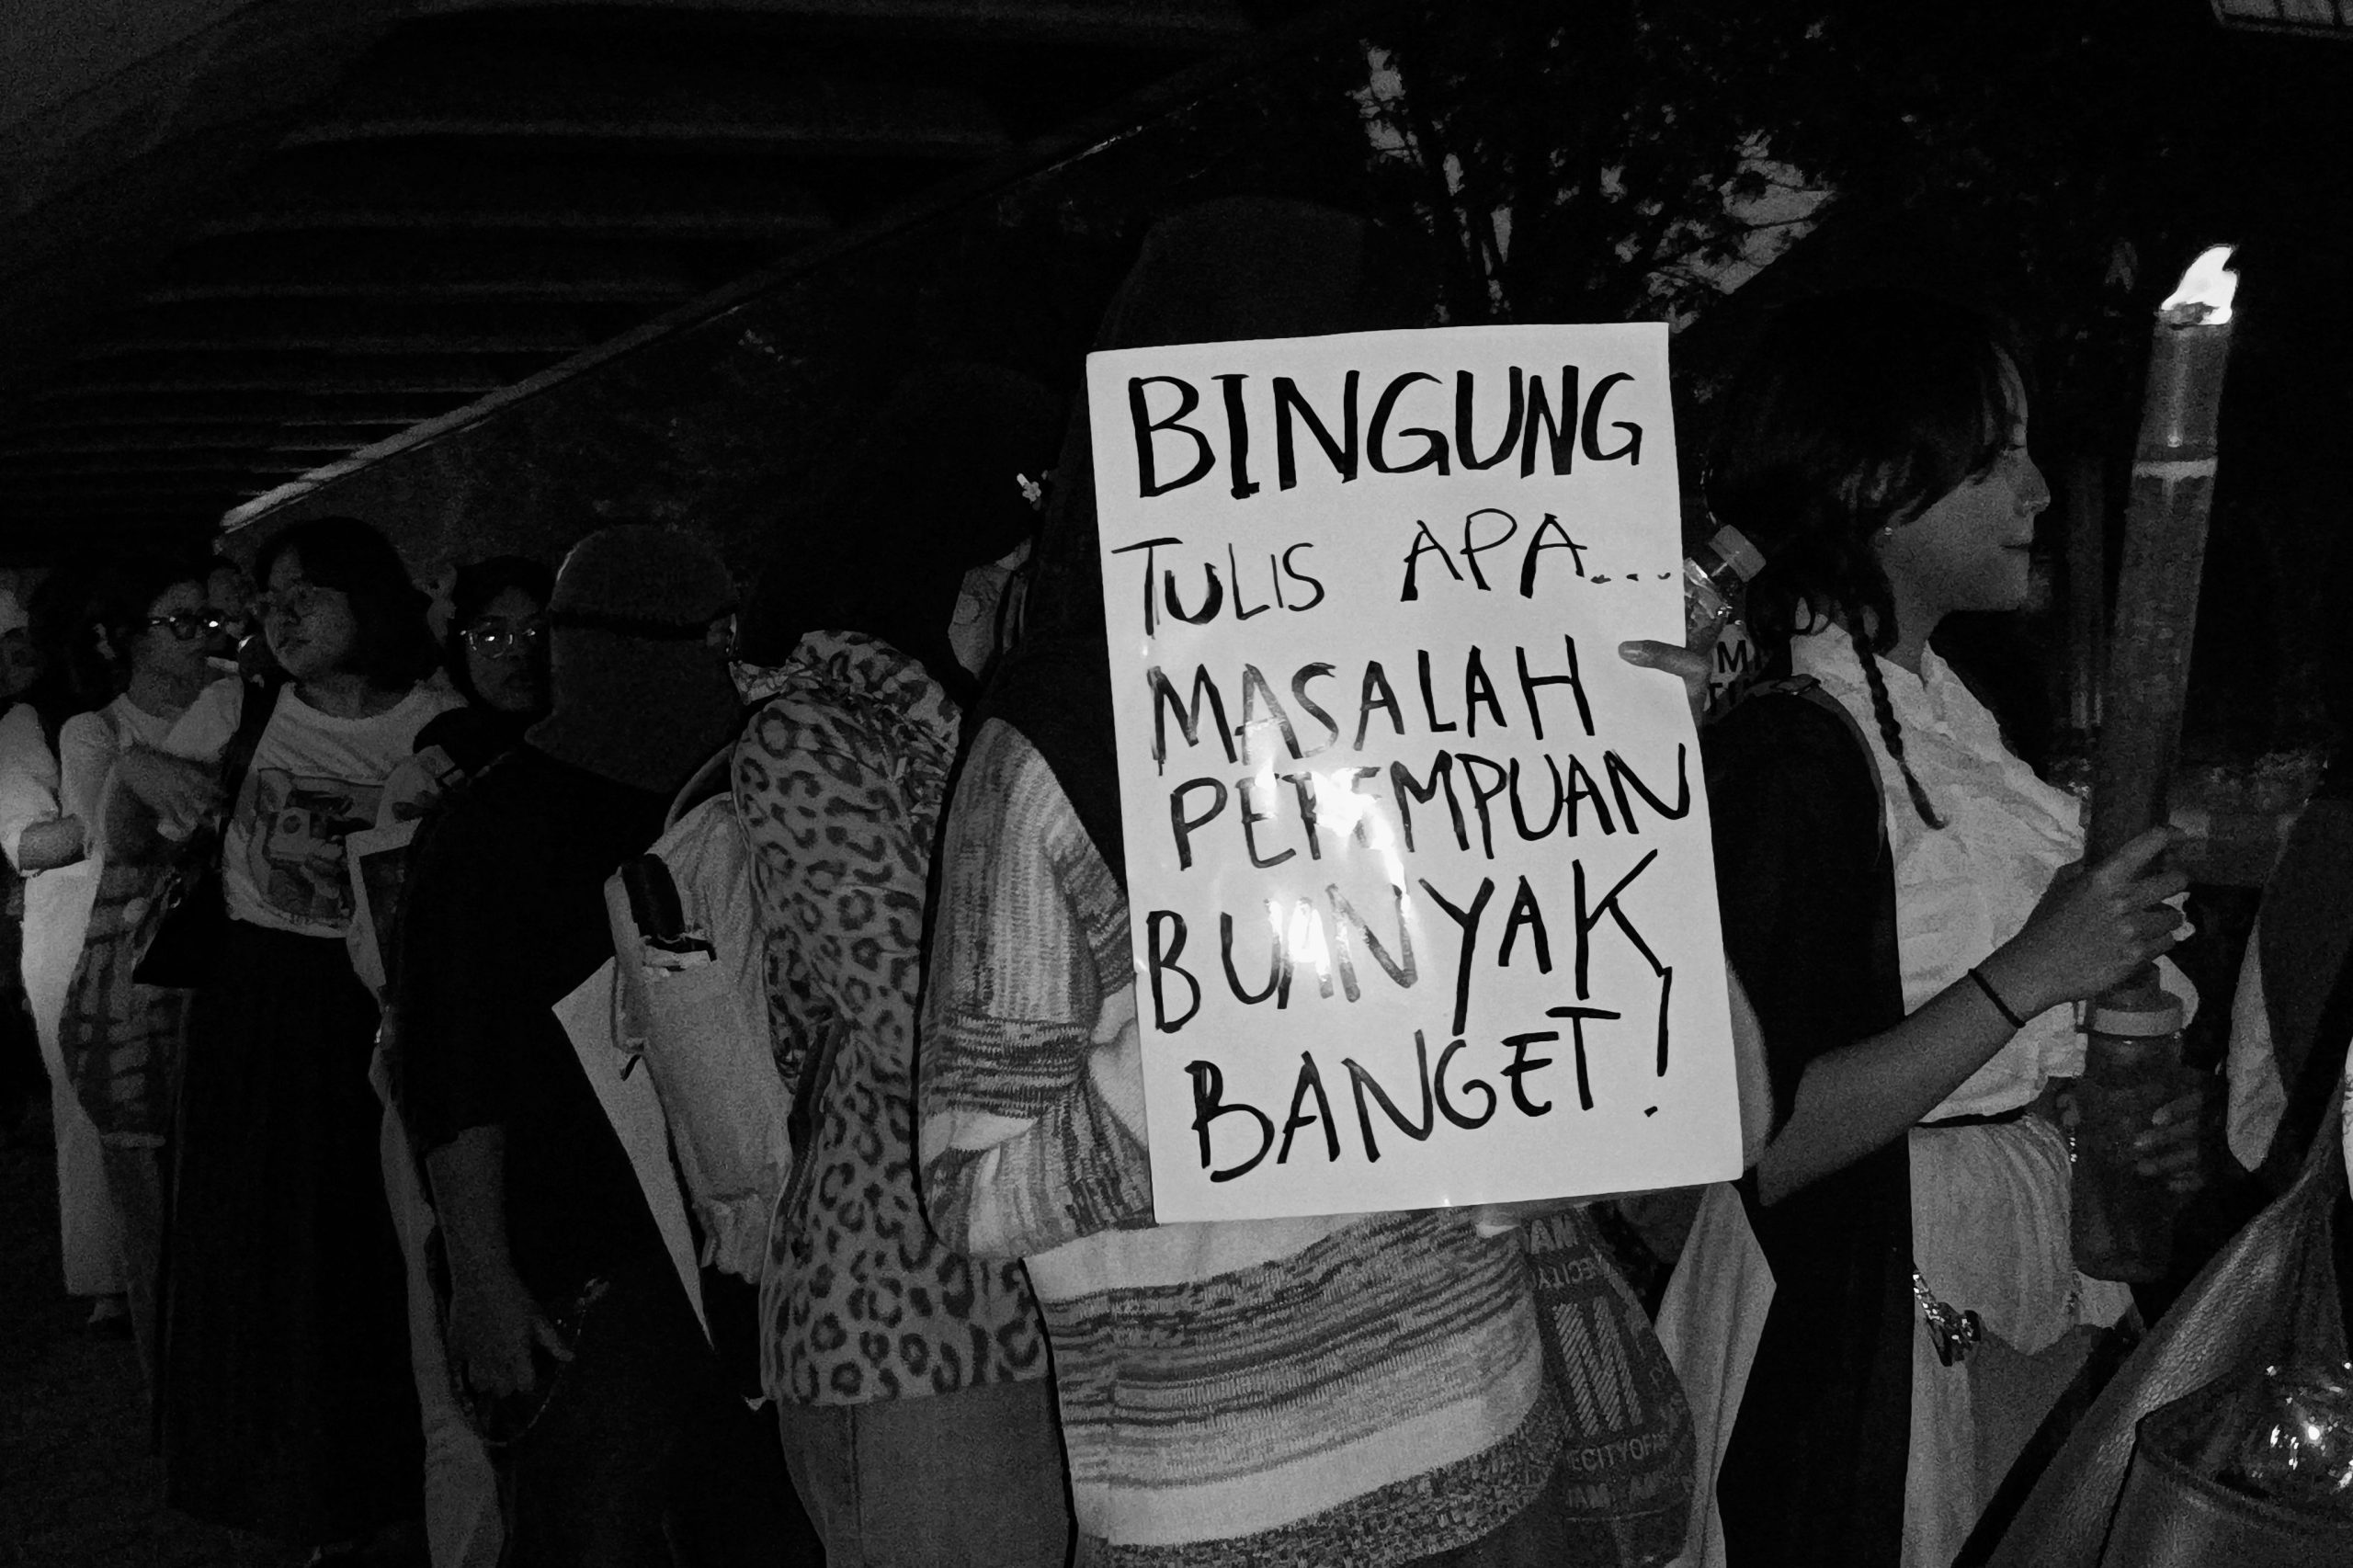 BINGUNG
TULIS APA...
MASALAH
PEREMPUAN
BUANYAK
BANGET!